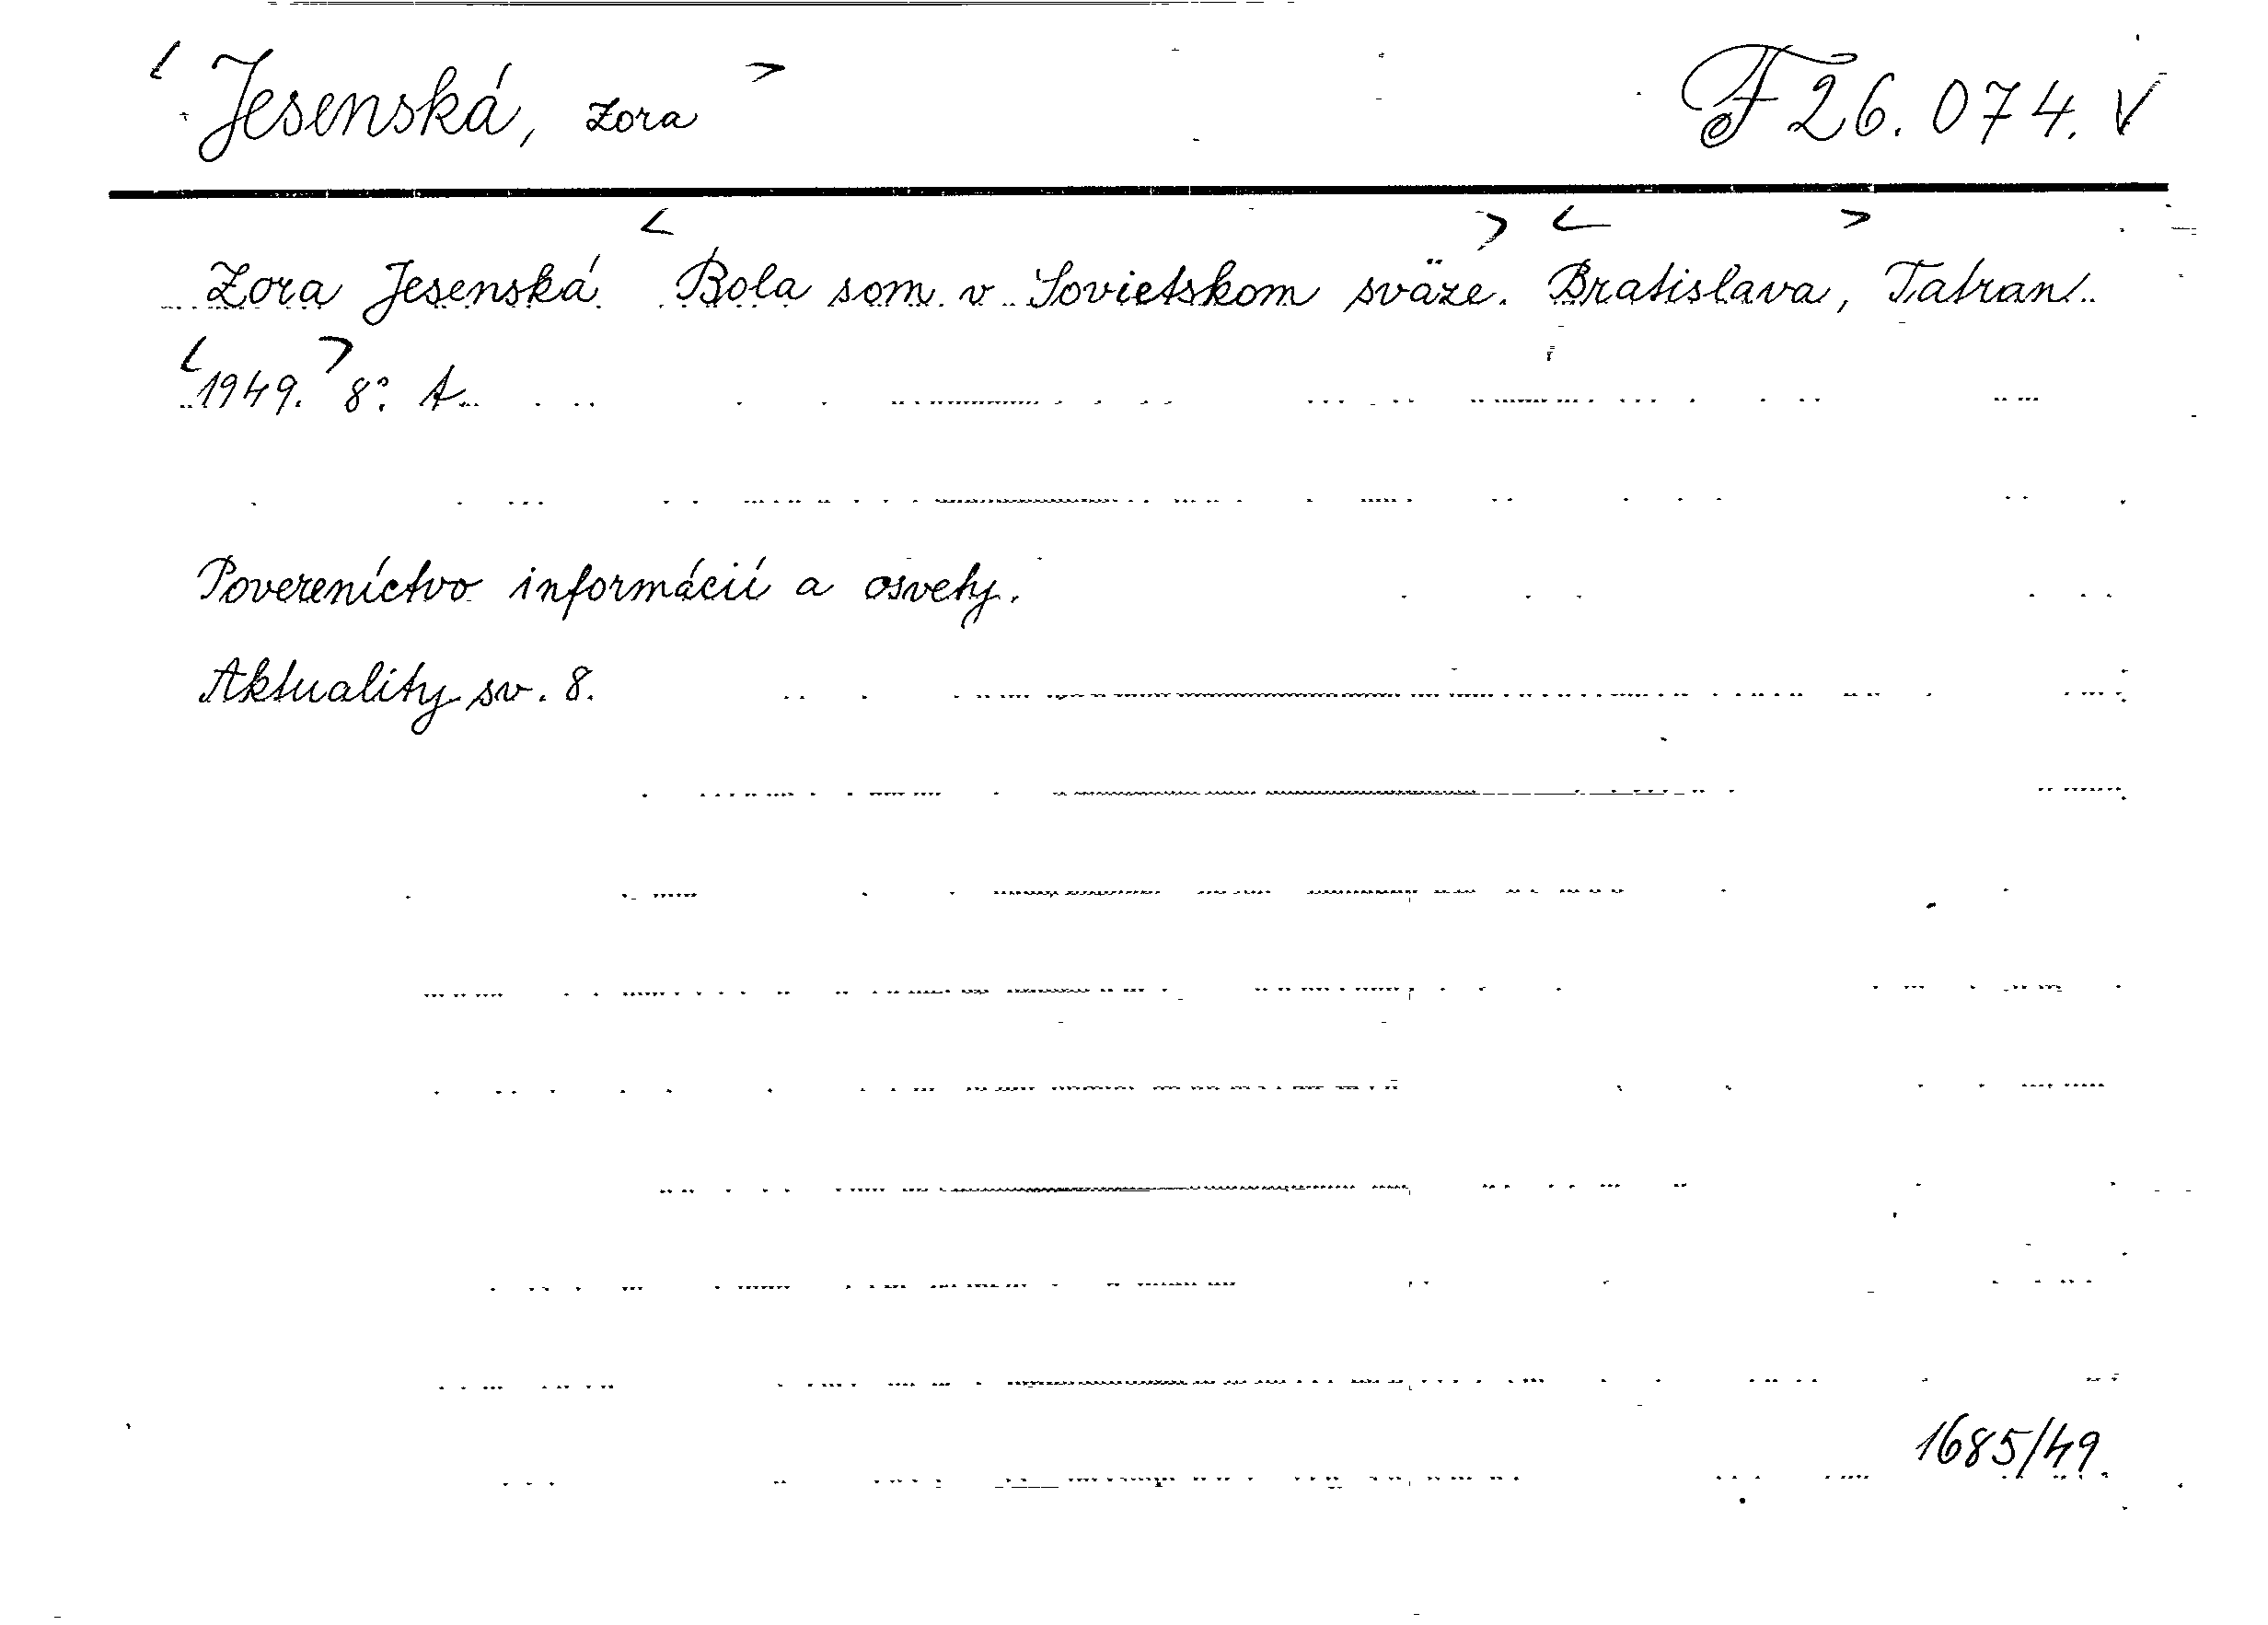 < Jesenská, Zora > F 26.074. V
Zora Jesenská < Bola som v Sovietskom sväze. > < Bratislava, > Tatran.
< 1949. > 8°.
Povereníctvo informácií a osvety.
Aktuality sv. 8.
1685/49.